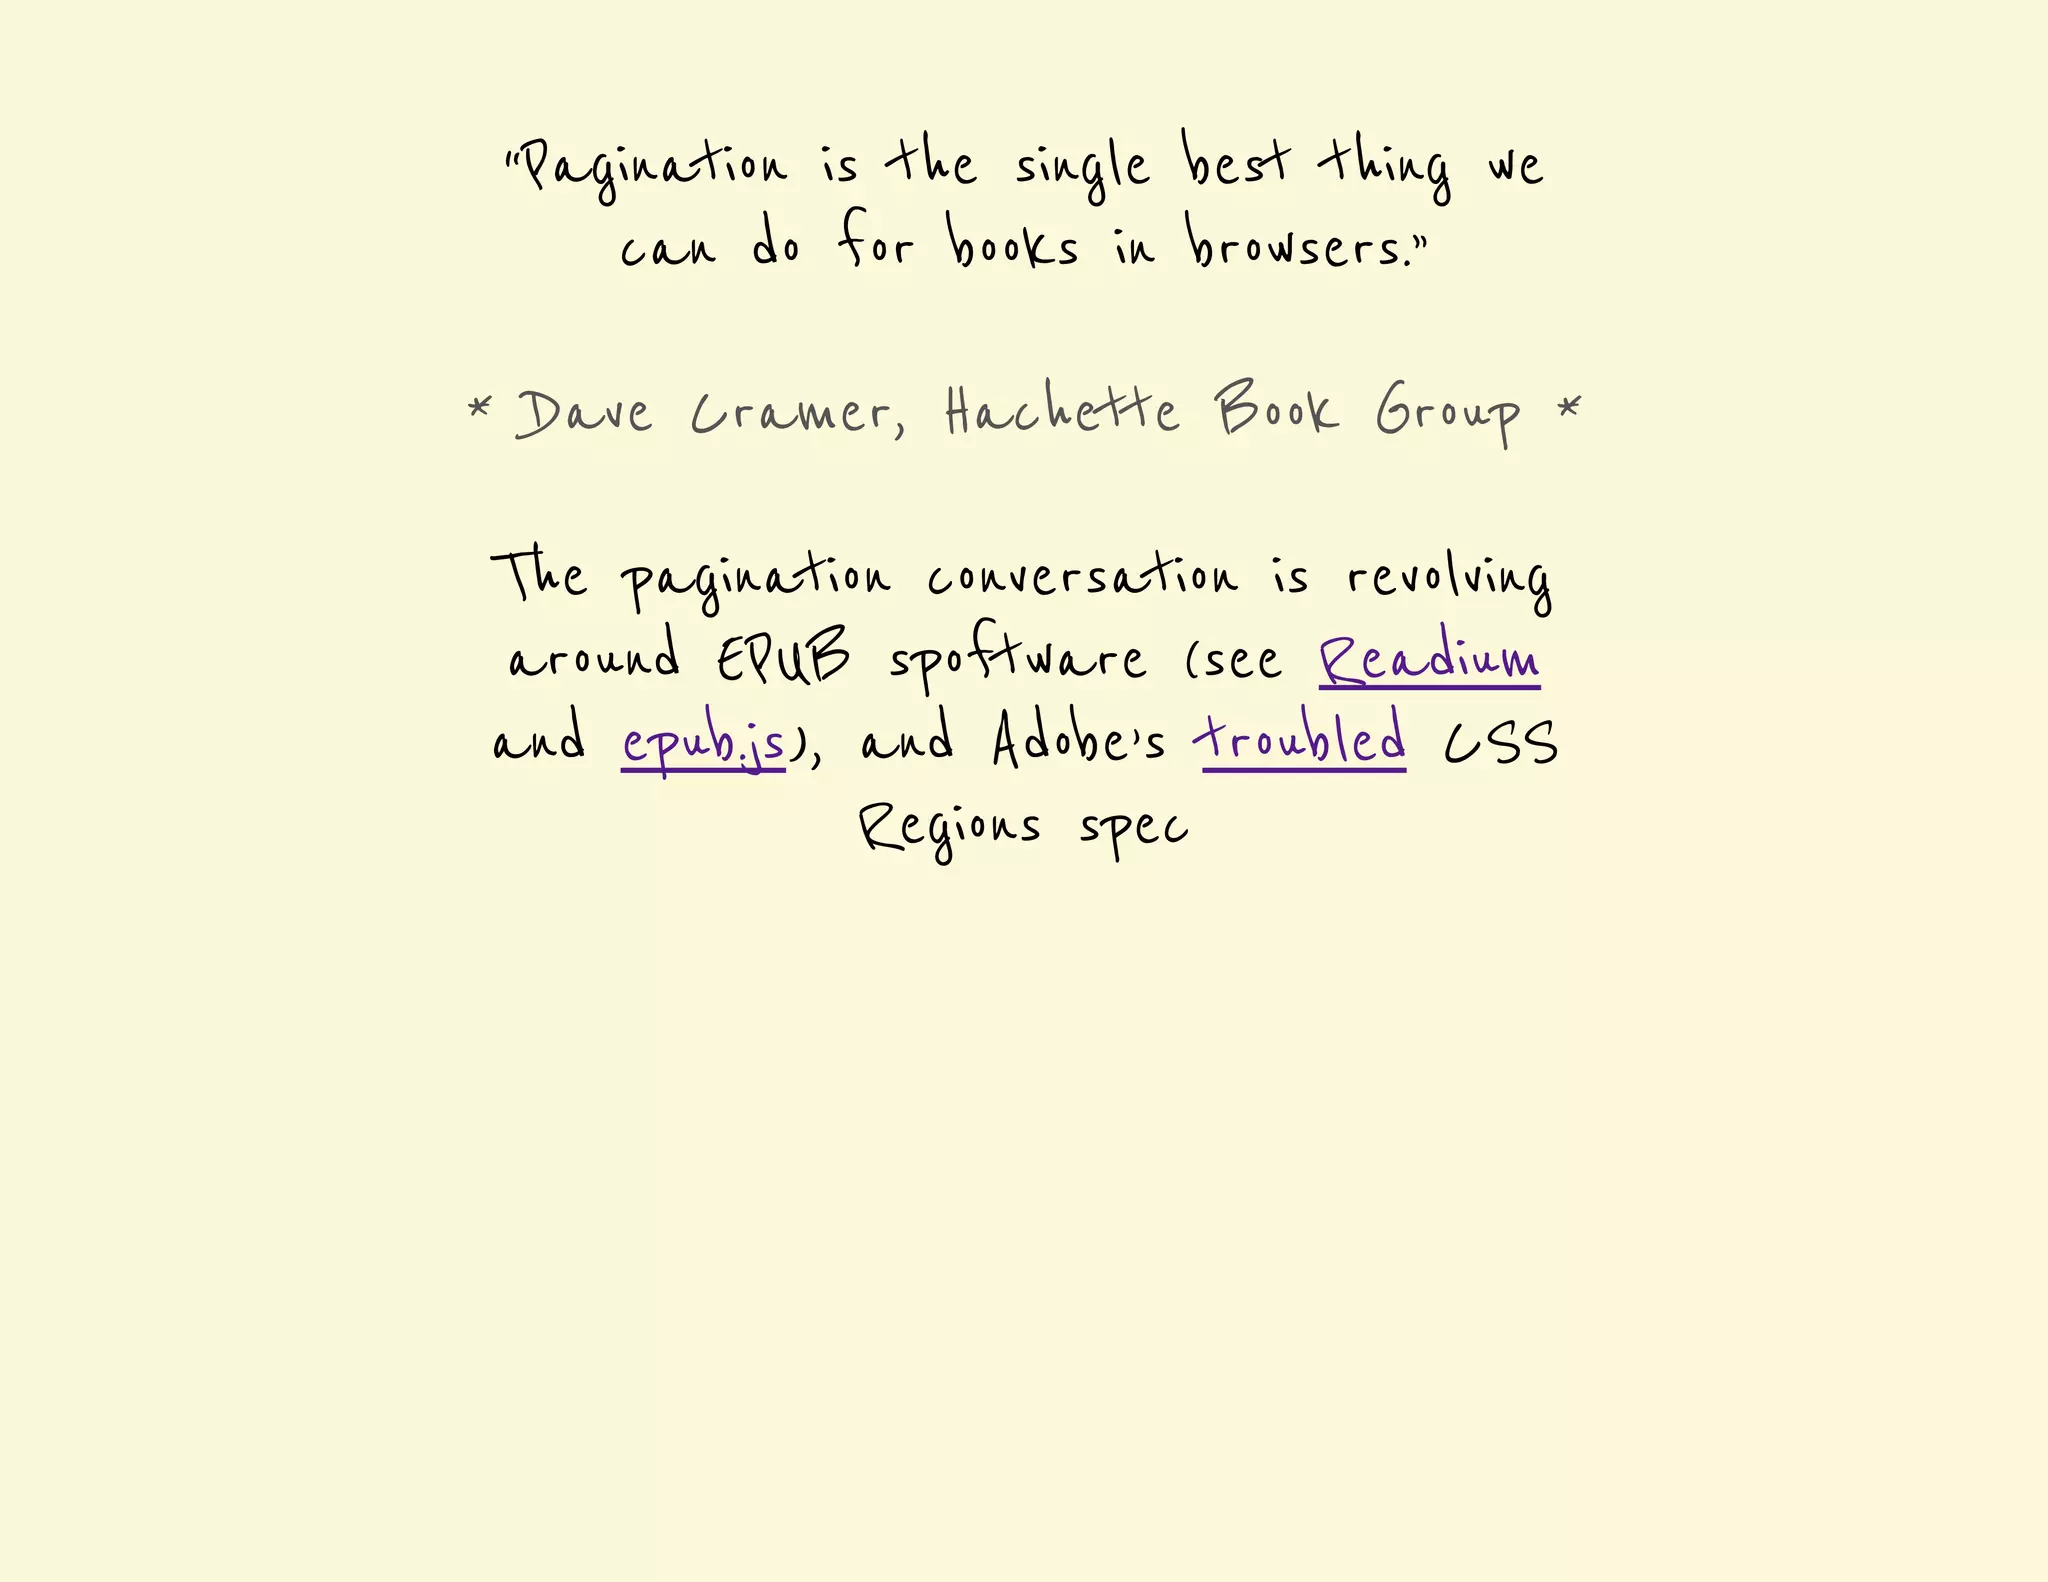 "Pagination is the single best thing we
can do for books in browsers."
* Dave Cramer, Hachette Book Group *
The pagination conversation is revolving
around EPUB spoftware (see Readium
and epub.js), and Adobe's troubled CSS
Regions spec